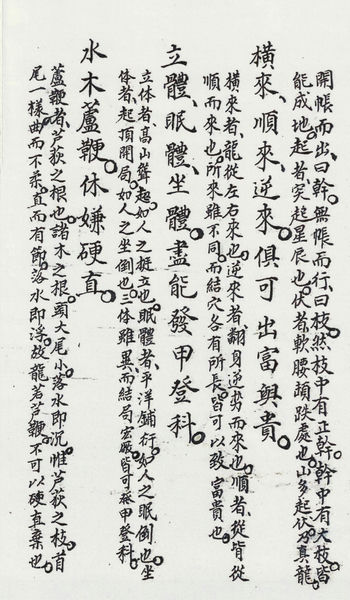 開帳而出曰幹、無帳而行曰枝、然枝中有正幹、幹中有大枝、皆
能成地、起者、突起星辰也、伏者、軟腰頓跌處也、山多起伏、乃真龍。
橫來、順來、逆來、俱可出富與貴。
橫來者、龍從左右來也、逆來者、翻身逆势而來也、順者、從背從
順而來也、所來雖不同、而結穴各有所長、皆可以致富貴也。
立體、眠體、坐體。盡能發甲登科。
立体者、高山聳起、如人之挺立也、眠體者、平洋铺衍、如人之眠倒也、坐
体者、起頂開局、如人之坐倒也、三体雖異、而結局宏厰、皆可發甲登科。
水木蘆鞭。休嫌硬直。
蘆鞭者、芦荻之根也、諸木之根、頭大尾小、落水即沉、惟芦荻之枝、首
尾一樣、曲而不柔、直而有節、落水即浮、故龍若芦鞭、不可以硬直棄也。